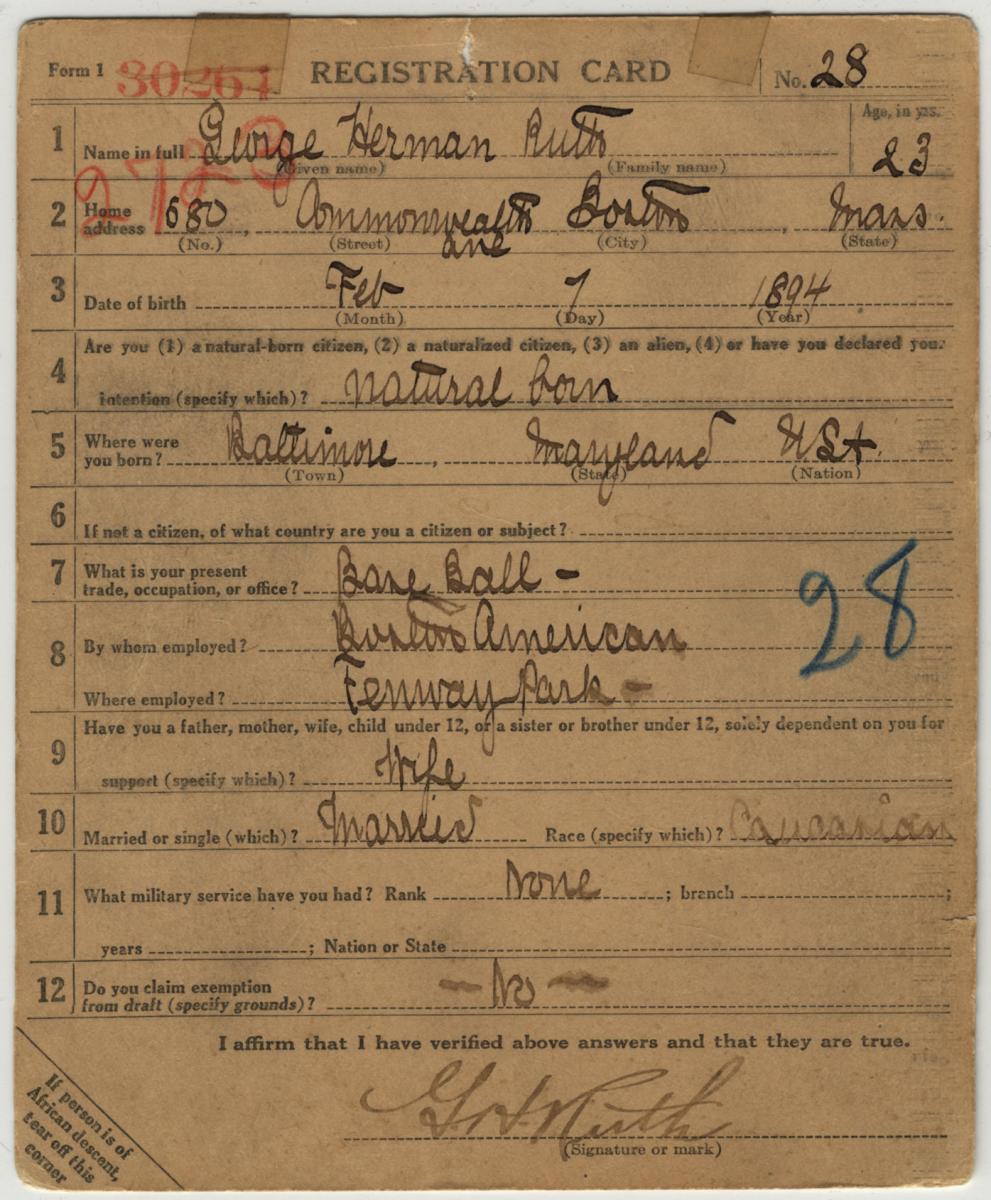 Form 1 30264 REGISTRATION CARD No. 28
1 Name in full George Herman Ruth Age, in yrs. 23
(Given name) (Family name)
2783
2 Home address 680 Commonwealth ave Boston, Mass.
(No.) (Street) (City) (State)
3 Date of birth Feb 7 1894
(Month) (Day) (Year)
4 Are you (1) a natural-born citizen, (2) a naturalized citizen, (3) an alien, (4) or have you declared your
intention (specify which)? natural born
5 Where were you born? Baltimore, Maryland USA.
(Town) (State) (Nation)
6 If not a citizen, of what country are you a citizen or subject?
7 What is your present trade, occupation, or office? Base Ball -
28
8 By whom employed? Boston American
Where employed? Fenway Park -
9 Have you a father, mother, wife, child under 12, or a sister or brother under 12, solely dependent on you for
support (specify which)? Wife
10 Married or single (which)? Married Race (specify which)? Caucasian
11 What military service have you had? Rank None ; branch ;
years ; Nation or State
12 Do you claim exemption from draft (specify grounds)? — No —
I affirm that I have verified above answers and that they are true.
G H Ruth
(Signature or mark)
If person is of
African descent,
tear off this
corner